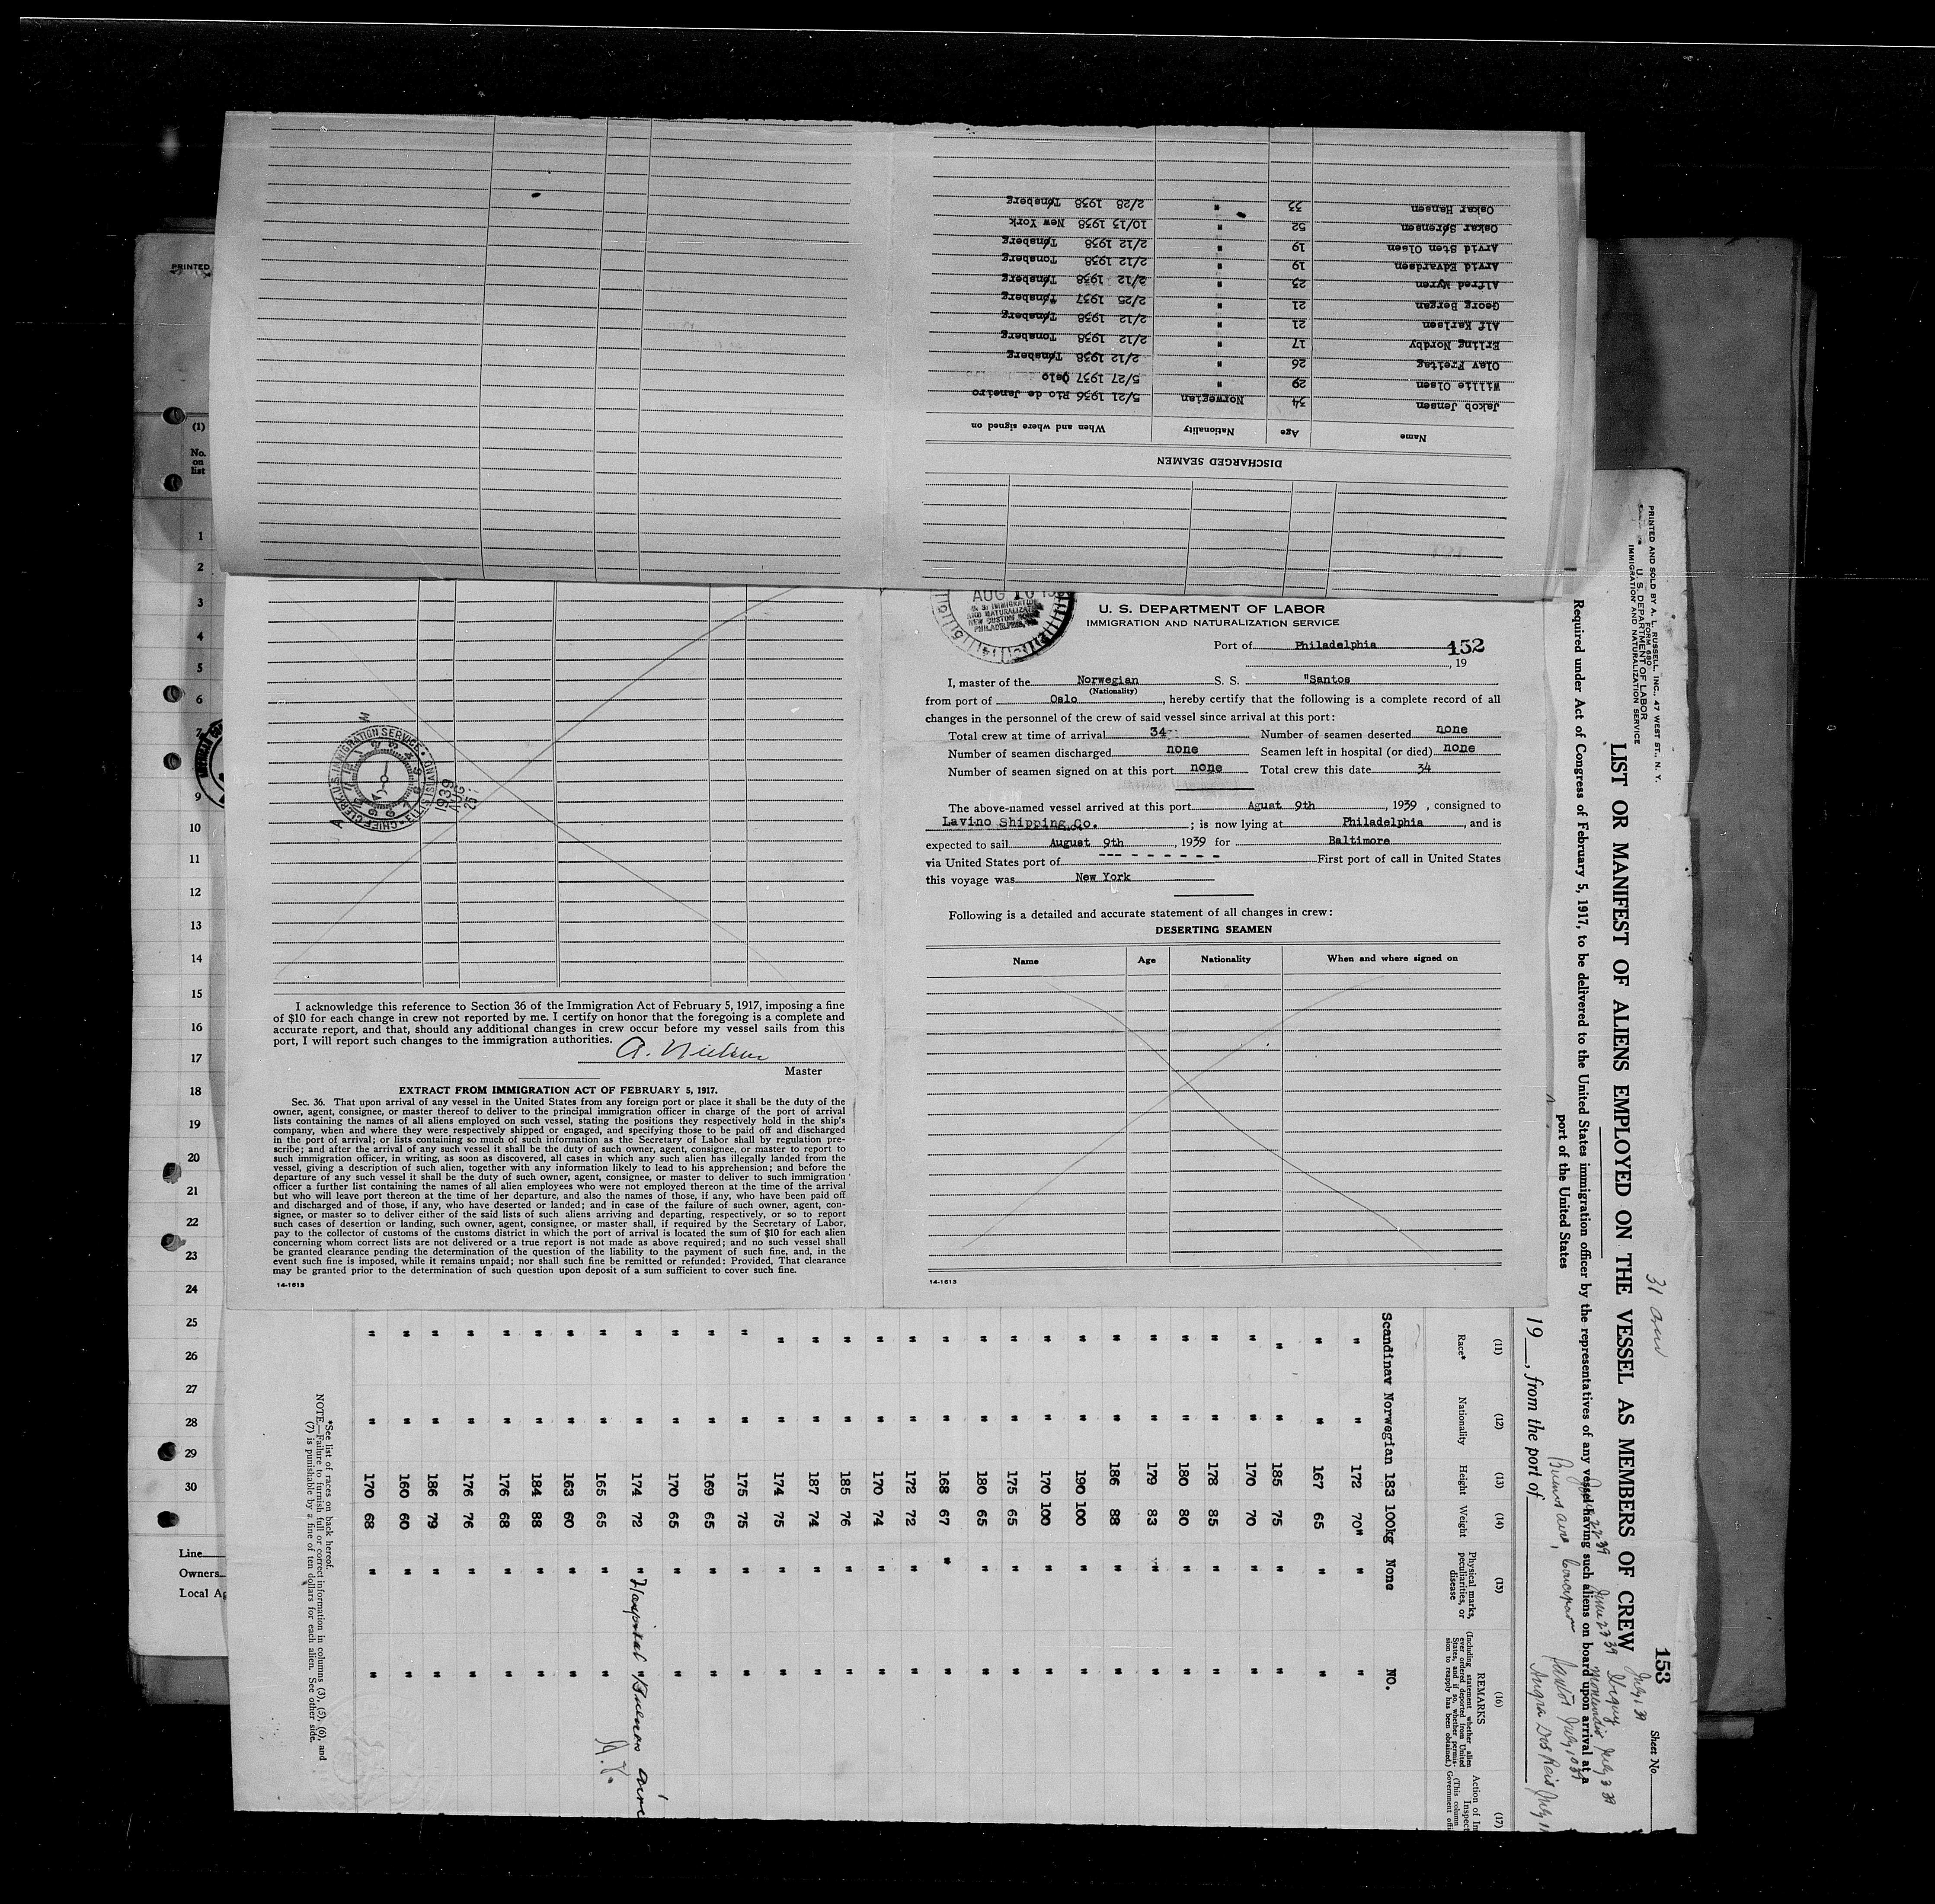 DISCHARGED SEAMEN
Name Age Nationality When and where signed on
Jakob Jensen 34 Norwegian 5/21 1936 Rio de Janeiro
Willie Olsen 29 " 5/27 1937 Oslo
Olav Freitag 26 " 2/12 1938 Tønsberg
Erling Nordby 17 " 2/12 1938 Tonsberg
Alf Karlsen 21 " 2/12 1938 Tønsberg
Georg Bergan 21 " 2/25 1937 Tønsberg
Alfred Myren 23 " 2/12 1938 Tønsberg
Arvid Edvardsen 19 " 2/12 1938 Tonsberg
Arvid Sten Olsen 19 " 2/12 1938 Tønsberg
Oskar Sørensen 52 " 10/13 1938 New York
Oskar Hansen 33 " 2/28 1938 Tønsberg
AUG 10
U. S. IMMIGRATION
AND NATURALIZATION
NEW CUSTOM HOUSE
PHILADELPHIA, PA.
U. S. DEPARTMENT OF LABOR
IMMIGRATION AND NATURALIZATION SERVICE
Port of Philadelphia 152
, 19
I, master of the Norwegian S. S. "Santos
(Nationality)
from port of Oslo, hereby certify that the following is a complete record of all
changes in the personnel of the crew of said vessel since arrival at this port:
Total crew at time of arrival 34 Number of seamen deserted none
Number of seamen discharged none Seamen left in hospital (or died) none
Number of seamen signed on at this port none Total crew this date 34
The above-named vessel arrived at this port Agust 9th, 1939, consigned to
Lavino Shipping Co. ; is now lying at Philadelphia, and is
expected to sail August 9th, 1939 for Baltimore
via United States port of --- - - - - - - First port of call in United States
this voyage was New York
Following is a detailed and accurate statement of all changes in crew:
DESERTING SEAMEN
Name Age Nationality When and where signed on
14-1613
CHIEF CLERK U.S. IMMIGRATION SERVICE ELLIS ISLAND
1939
AUG
25
I acknowledge this reference to Section 36 of the Immigration Act of February 5, 1917, imposing a fine
of $10 for each change in crew not reported by me. I certify on honor that the foregoing is a complete and
accurate report, and that, should any additional changes in crew occur before my vessel sails from this
port, I will report such changes to the immigration authorities.
A. Nielsen
Master
EXTRACT FROM IMMIGRATION ACT OF FEBRUARY 5, 1917.
Sec. 36. That upon arrival of any vessel in the United States from any foreign port or place it shall be the duty of the
owner, agent, consignee, or master thereof to deliver to the principal immigration officer in charge of the port of arrival
lists containing the names of all aliens employed on such vessel, stating the positions they respectively hold in the ship's
company, when and where they were respectively shipped or engaged, and specifying those to be paid off and discharged
in the port of arrival; or lists containing so much of such information as the Secretary of Labor shall by regulation pre-
scribe; and after the arrival of any such vessel it shall be the duty of such owner, agent, consignee, or master to report to
such immigration officer, in writing, as soon as discovered, all cases in which any such alien has illegally landed from the
vessel, giving a description of such alien, together with any information likely to lead to his apprehension; and before the
departure of any such vessel it shall be the duty of such owner, agent, consignee, or master to deliver to such immigration
officer a further list containing the names of all alien employees who were not employed thereon at the time of the arrival
but who will leave port thereon at the time of her departure, and also the names of those, if any, who have been paid off
and discharged and of those, if any, who have deserted or landed; and in case of the failure of such owner, agent, con-
signee, or master so to deliver either of the said lists of such aliens arriving and departing, respectively, or so to report
such cases of desertion or landing, such owner, agent, consignee, or master shall, if required by the Secretary of Labor,
pay to the collector of customs of the customs district in which the port of arrival is located the sum of $10 for each alien
concerning whom correct lists are not delivered or a true report is not made as above required; and no such vessel shall
be granted clearance pending the determination of the question of the liability to the payment of such fine, and, in the
event such fine is imposed, while it remains unpaid; nor shall such fine be remitted or refunded: Provided, That clearance
may be granted prior to the determination of such question upon deposit of a sum sufficient to cover such fine.
14-1613
PRINTED
(1)
No.
on
list
1
2
3
4
5
6
7
9
10
11
12
13
14
15
16
17
18
19
20
21
22
23
24
25
26
27
28
29
30
Line
Owners
Local Ag
PRINTED AND SOLD BY A. L. RUSSELL, INC., 47 WEST ST., N. Y.
FORM 680
U. S. DEPARTMENT OF LABOR
IMMIGRATION AND NATURALIZATION SERVICE
31
153
Sheet No.
LIST OR MANIFEST OF ALIENS EMPLOYED ON THE VESSEL AS MEMBERS OF CREW
Required under Act of Congress of February 5, 1917, to be delivered to the United States immigration officer by the representatives of any vessel having such aliens on board upon arrival at a
port of the United States
July 1 39
June 27 39
Montevideo July 3 39
Buenos aires,
Santos July 10 39
Angra Dos Reis July 11
19 , from the port of
(11) (12) (13) (14) (15) (16) (17)
Race* Nationality Height Weight Physical marks, peculiarities, or disease REMARKS (Including statement whether alien ever ordered deported from United States, and if so, whether permission to reapply has been obtained.) Action of Im Inspect (This column Government offi
Scandinav Norwegian 183 100kg None NO.
" " 172 70" " "
" " 167 65 " "
" " 185 75 " "
" " 170 70 " "
" " 178 85 " "
" " 180 80 " "
" " 179 83 " "
" " 186 88 " "
" " 190 100 " "
" " 170 100 " "
" " 175 65 " "
" " 180 65 " "
" " 168 67 " "
" " 172 72 " "
" " 170 74 " "
" " 185 76 " "
" " 187 74 " "
" " 174 75 " "
" " 175 75 " "
" " 169 65 " "
" " 170 65 " "
" " 174 72 " Hospital " Buenos aire
" " 165 65 " "
" " 163 60 " "
" " 184 88 " "
" " 176 68 " "
" " 176 76 " "
" " 186 79 " "
" " 160 60 " "
" " 170 68 " "
*See list of races on back hereof.
NOTE.—Failure to furnish full or correct information in columns (3), (5), (6), and
(7) is punishable by a fine of ten dollars for each alien. See other side.